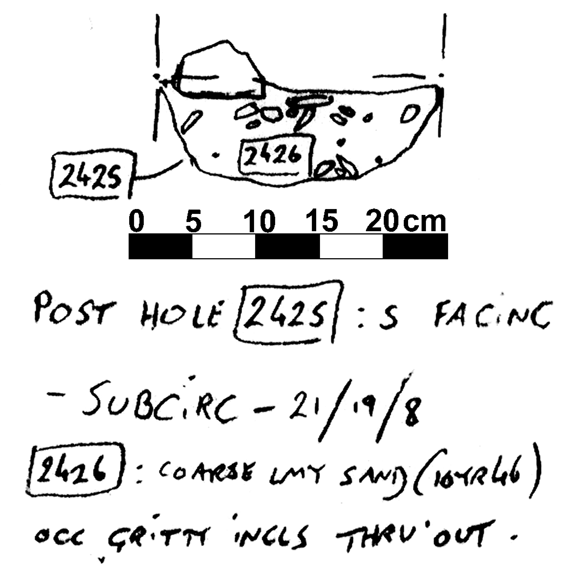 2426
2425
0 5 10 15 20cm
POST HOLE 2425 : S FACING
- SUBCIRC - 21/19/8
2426 : COARSE LMY SAND (10YR46)
OCC GRITTY INCLS THRU'OUT.